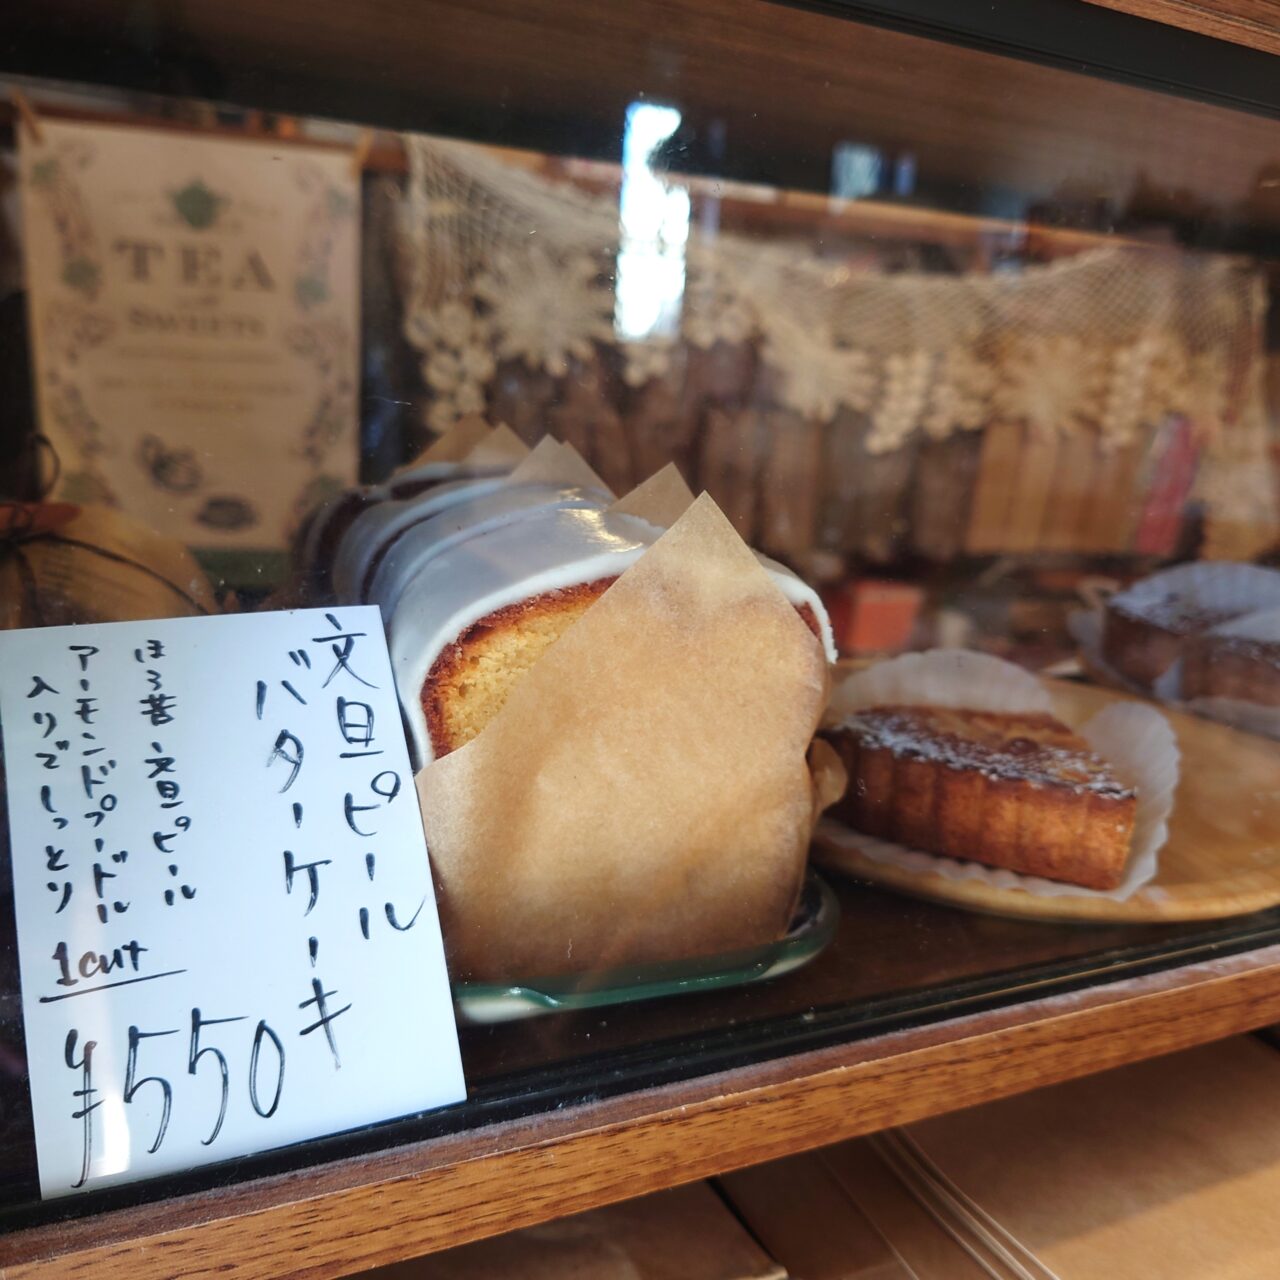 文旦ピール
バターケーキ
ほろ苦文旦ピール
アーモンドプードル
入りでしっとり
1cut
¥550
TEA
SWEETS